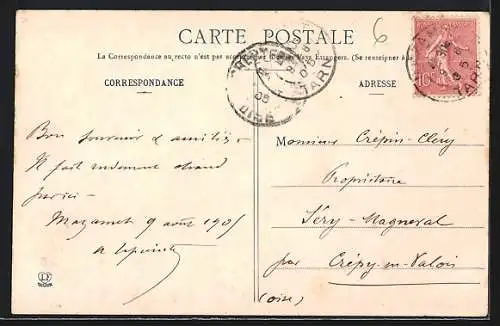 CARTE POSTALE
6
La Correspondance au recto n'est pas
(Se renseigner à la
CORRESPONDANCE
ADRESSE
TARN
OISE
05
10
TARN
Bon souvenir & amitiés
Il fait rudement chaud
par ici
Mazamet 9 août 1905
Monsieur Crépin-Cléry
Propriétaire
Séry-Magneval
par Crépy-en-Valois
(Oise)